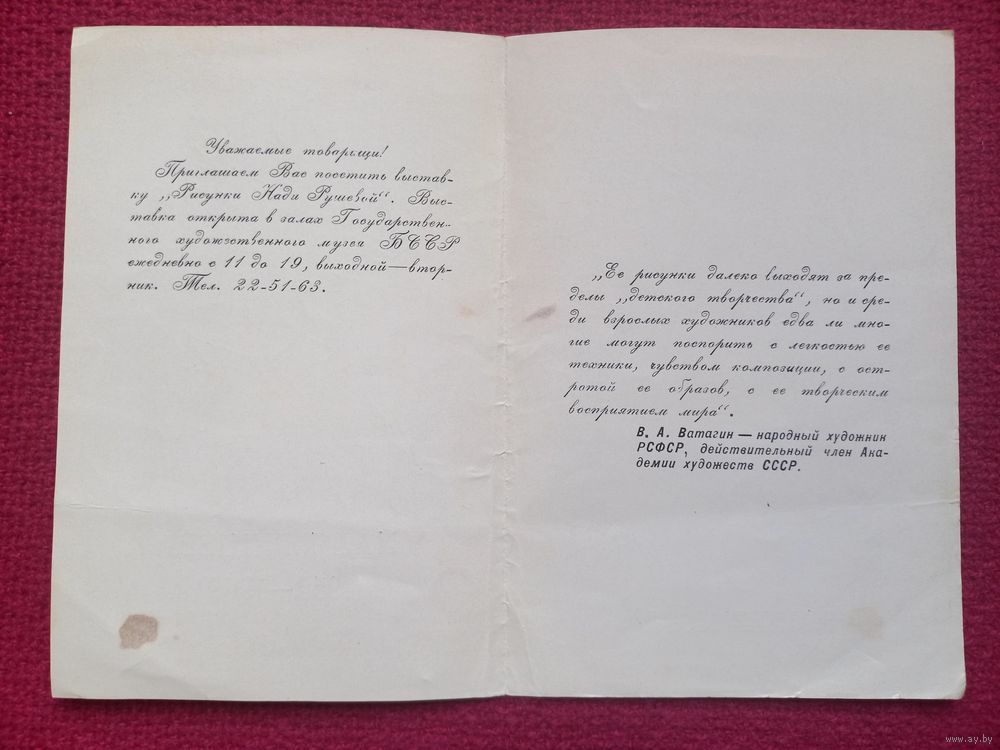 Уважаемые товарищи!
Приглашаем Вас посетить выстав-
ку „Рисунки Нади Рушевой“. Выс-
тавка открыта в залах Государствен-
ного художественного музея БССР
ежедневно с 11 до 19, выходной—втор-
ник. Тел. 22-51-63.
„Ее рисунки далеко выходят за пре-
делы „детского творчества“, но и сре-
ди взрослых художников едва ли мно-
гие могут поспорить с легкостью ее
техники, чувством композиции, с ост-
ротой ее образов, с ее творческим
восприятием мира“.
В. А. Ватагин — народный художник
РСФСР, действительный член Ака-
демии художеств СССР.
www.ay.by